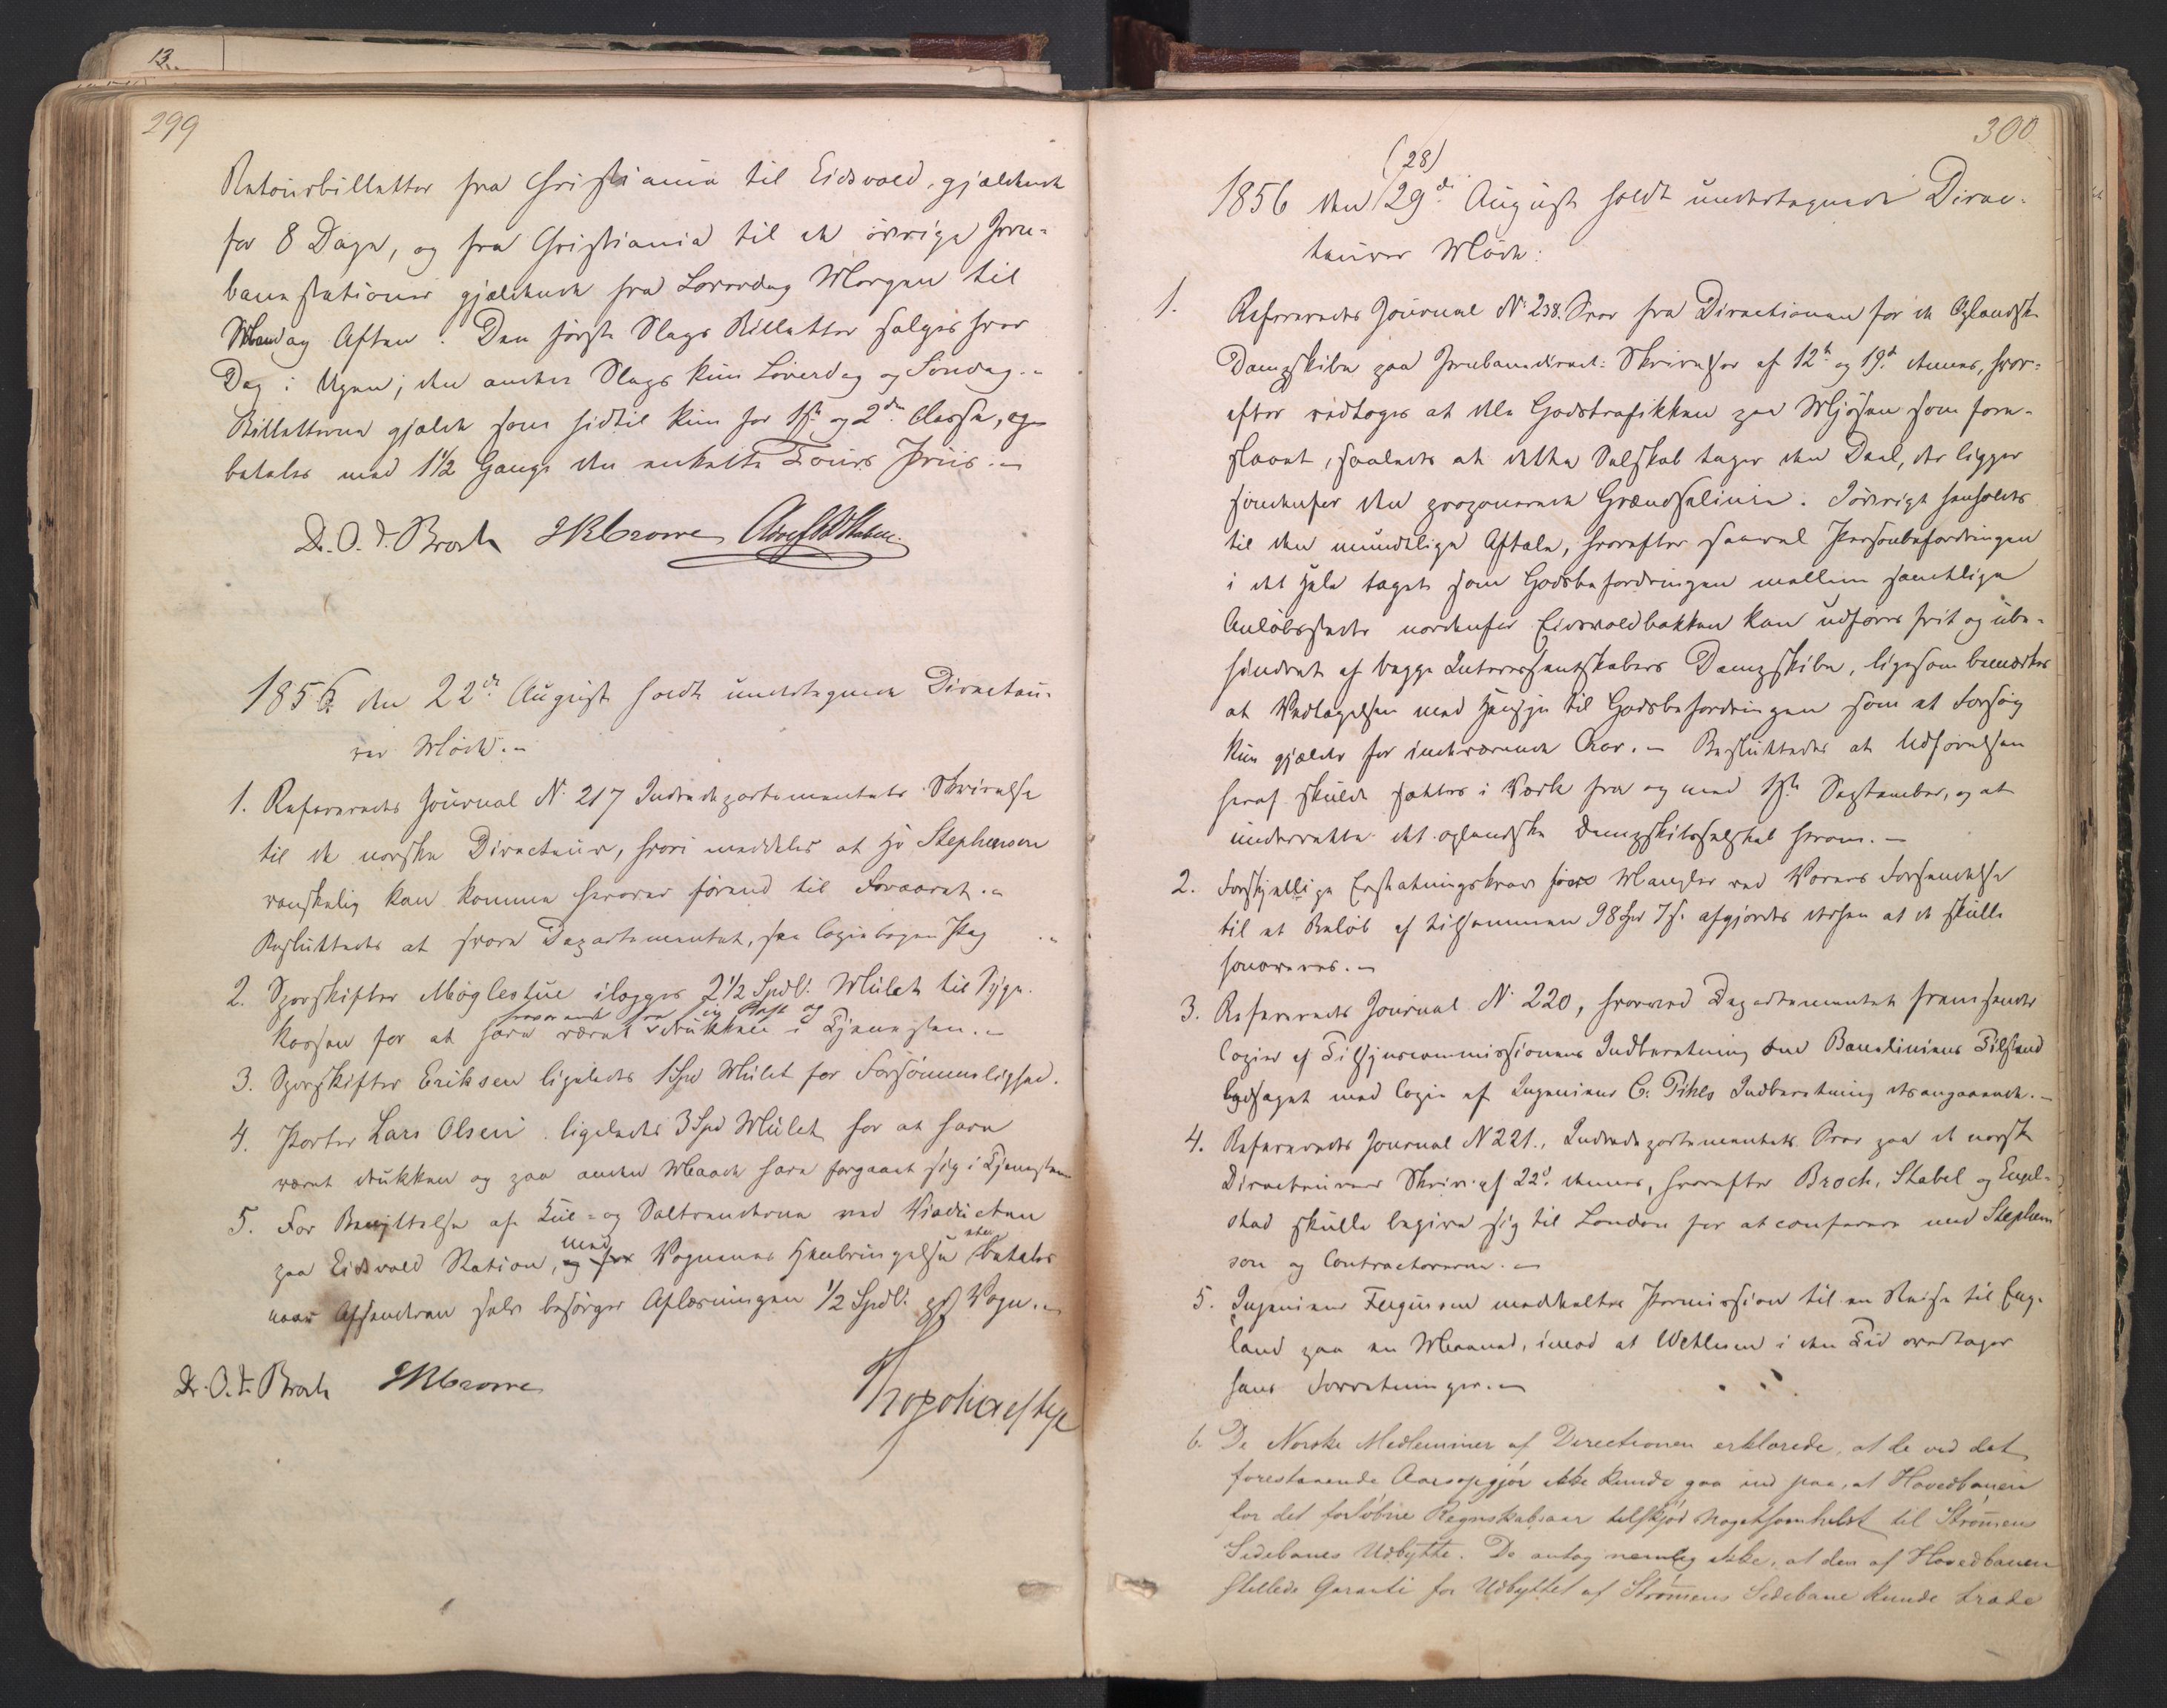 13.
299
Retourbilletter fra Christiania til Eidsvold, gjældende
for 8 Dage, og fra Christiania til de övrige Jern-
banestationer gjældende fra Löverdag Morgen til
Mandag Aften. Den förste Slags Billetter sælges hver
Dag i Ugen; den anden Slags kun Löverdag og Söndag.-
Billetterne gjælde som hidtil kun for 1ste og 2den Classe, og
betales med 1½ Gange den enkelte Tours Priis.-
Dr. O. J. Broch JRCrowe
1856 den 22de August holdt undertegnede Directeu-
rer Möde.-
1. Refereredes Journal N. 217 Indredepartementets Skrivelse
til de norske Directeurer, hvori meddeles at Hr Stephenson
vanskelig kan komme herover förend til Foraaret.-
Besluttedes at svare Departementet, see Copiebogen Pag .-
2. Sporskifter Møglestue ilægges 2½ Spdl. Mulct til Syge-
kassen for at have været fraværende fra sin Post og drukken i Tjenesten.-
3. Sporskifter Eriksen ligeledes 1 Spd Mulct for Forsömmelighed.
4. Porter Lars Olsen ligeledes 3 Spd Mulct for at have
været drukken og paa anden Maade have forgaaet sig i Tjenesten
5. For Benyttelse af Kul- og Saltrenderne ved Viaducten
paa Eidsvold Station, og for med Vognenes Henbringelse betales
naar Afsenderen selv besörger Aflæsningen ½ Spdl. pr Vogn.-
Dr. O. J. Broch JRCrowe
300
(28)
1856 den 29de August holdt undertegnede Direc-
teurer Möde:
1. Refereredes Journal N. 238. Svar fra Directionen for de Oplandske
Dampskibe paa Jernbanedirect: Skrivelser af 12te og 19de dennes, hvor-
efter vedtoges at dele Godstrafikken paa Mjösen som fore-
slaaet, saaledes at dette Selskab tager den Deel, der ligger
söndenfor den proponerede Grændselinie. Iövrigt henholdes
til den mundtlige Aftale, hvorefter saavel Personbefordringen
i det Hele taget som Godsbefordringen mellem samtlige
Anlöbssteder nordenfor Eidsvoldbakken kan udföres frit og ube-
hindret af begge Interessentskabers Dampskibe, ligesom bemærkes
at Vedtagelsen med Hensyn til Godsbefordringen som et Forsög
kun gjælder for indeværende Aar.- Besluttedes at Udförelsen
heraf skulde sættes i Værk fra og med 1ste September, og at
underrette det oplandske Dampskibsselskab herom.-
2. Forskjellige Erstatningskrav for Mangler ved Varers Forsendelse
til et Belöb af tilsammen 98 Spd 7 s. afgjordes derhen at de skulle
honoreres.-
3. Refereredes Journal N. 220, hvorved Departementet fremsender
Copier af Tilsynscommissionens Indberetning om Baneliniens Tilstand
ledsaget med Copie af Ingenieur C. Pihls Indberetning desangaaende.-
4. Refereredes Journal N 221., Indredepartementets Svar paa de norske
Directeurers Skriv. af 22de dennes, hvorefter Broch, Stabel og Engel-
stad skulle begive sig til London for at conferere med Stephen
son og Contractorerne.-
5. Ingenieur Ferguson meddeeltes Permission til en Reise til Eng-
land paa en Maaned, imod at Wetlesen i den Tid overtager
hans Forretninger.-
6. De Norske Medlemmer af Directionen erklærede, at de ved det
forestaaende Aarsopgjör ikke kunde gaa ind paa, at Hovedbanen
for det forlöbne Regnskabsaar tilskjöd Nogetsomhelst til Strömmens
Sidebanes Udbytte. De antog nemlig ikke, at den af Hovedbanen
stillede Garanti for Udbyttet af Strömmens Sidebane kunde træde